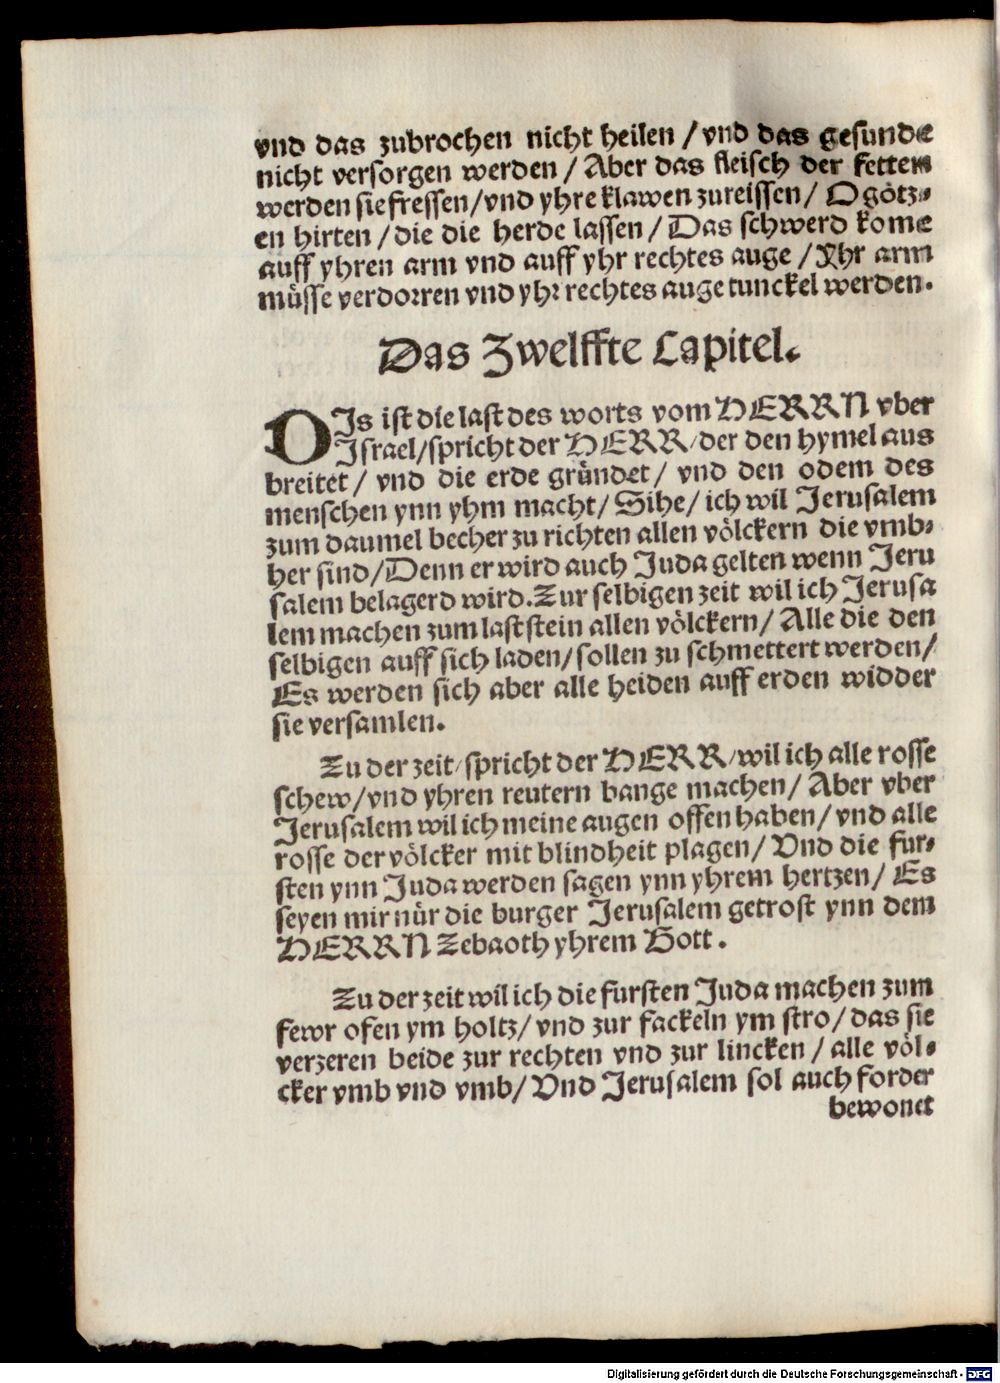 vnd das zubrochen nicht heilen / vnd das gesunde
nicht versorgen werden / Aber das fleisch der fetten
werden sie fressen / vnd yhre klawen zureissen / O götz⸗
en hirten / die die herde lassen / Das schwerd kome
auff yhren arm vnd auff yhr rechtes auge / Yhr arm
müsse verdorren vnd yhr rechtes auge tunckel werden.
Das Zwelffte Capitel.
DIs ist die last des worts vom HERRN vber
Israel / spricht der HERR / der den hymel aus
breitet / vnd die erde gründet / vnd den odem des
menschen ynn yhm macht / Sihe / ich wil Jerusalem
zum daumel becher zu richten allen völckern die vmb⸗
her sind / Denn er wird auch Juda gelten wenn Jeru
salem belagerd wird. Zur selbigen zeit wil ich Jerusa
lem machen zum laststein allen völckern / Alle die den
selbigen auff sich laden / sollen zu schmettert werden /
Es werden sich aber alle heiden auff erden widder
sie versamlen.
Zu der zeit / spricht der HERR / wil ich alle rosse
schew / vnd yhren reutern bange machen / Aber vber
Jerusalem wil ich meine augen offen haben / vnd alle
rosse der völcker mit blindheit plagen / Vnd die fur⸗
sten ynn Juda werden sagen ynn yhrem hertzen / Es
seyen mir nür die burger Jerusalem getrost ynn dem
HERRN Zebaoth yhrem Gott.
Zu der zeit wil ich die fursten Juda machen zum
fewr ofen ym holtz / vnd zur fackeln ym stro / das sie
verzeren beide zur rechten vnd zur lincken / alle völ⸗
cker vmb vnd vmb / Vnd Jerusalem sol auch forder
bewonet
Digitalisierung gefördert durch die Deutsche Forschungsgemeinschaft - DFG